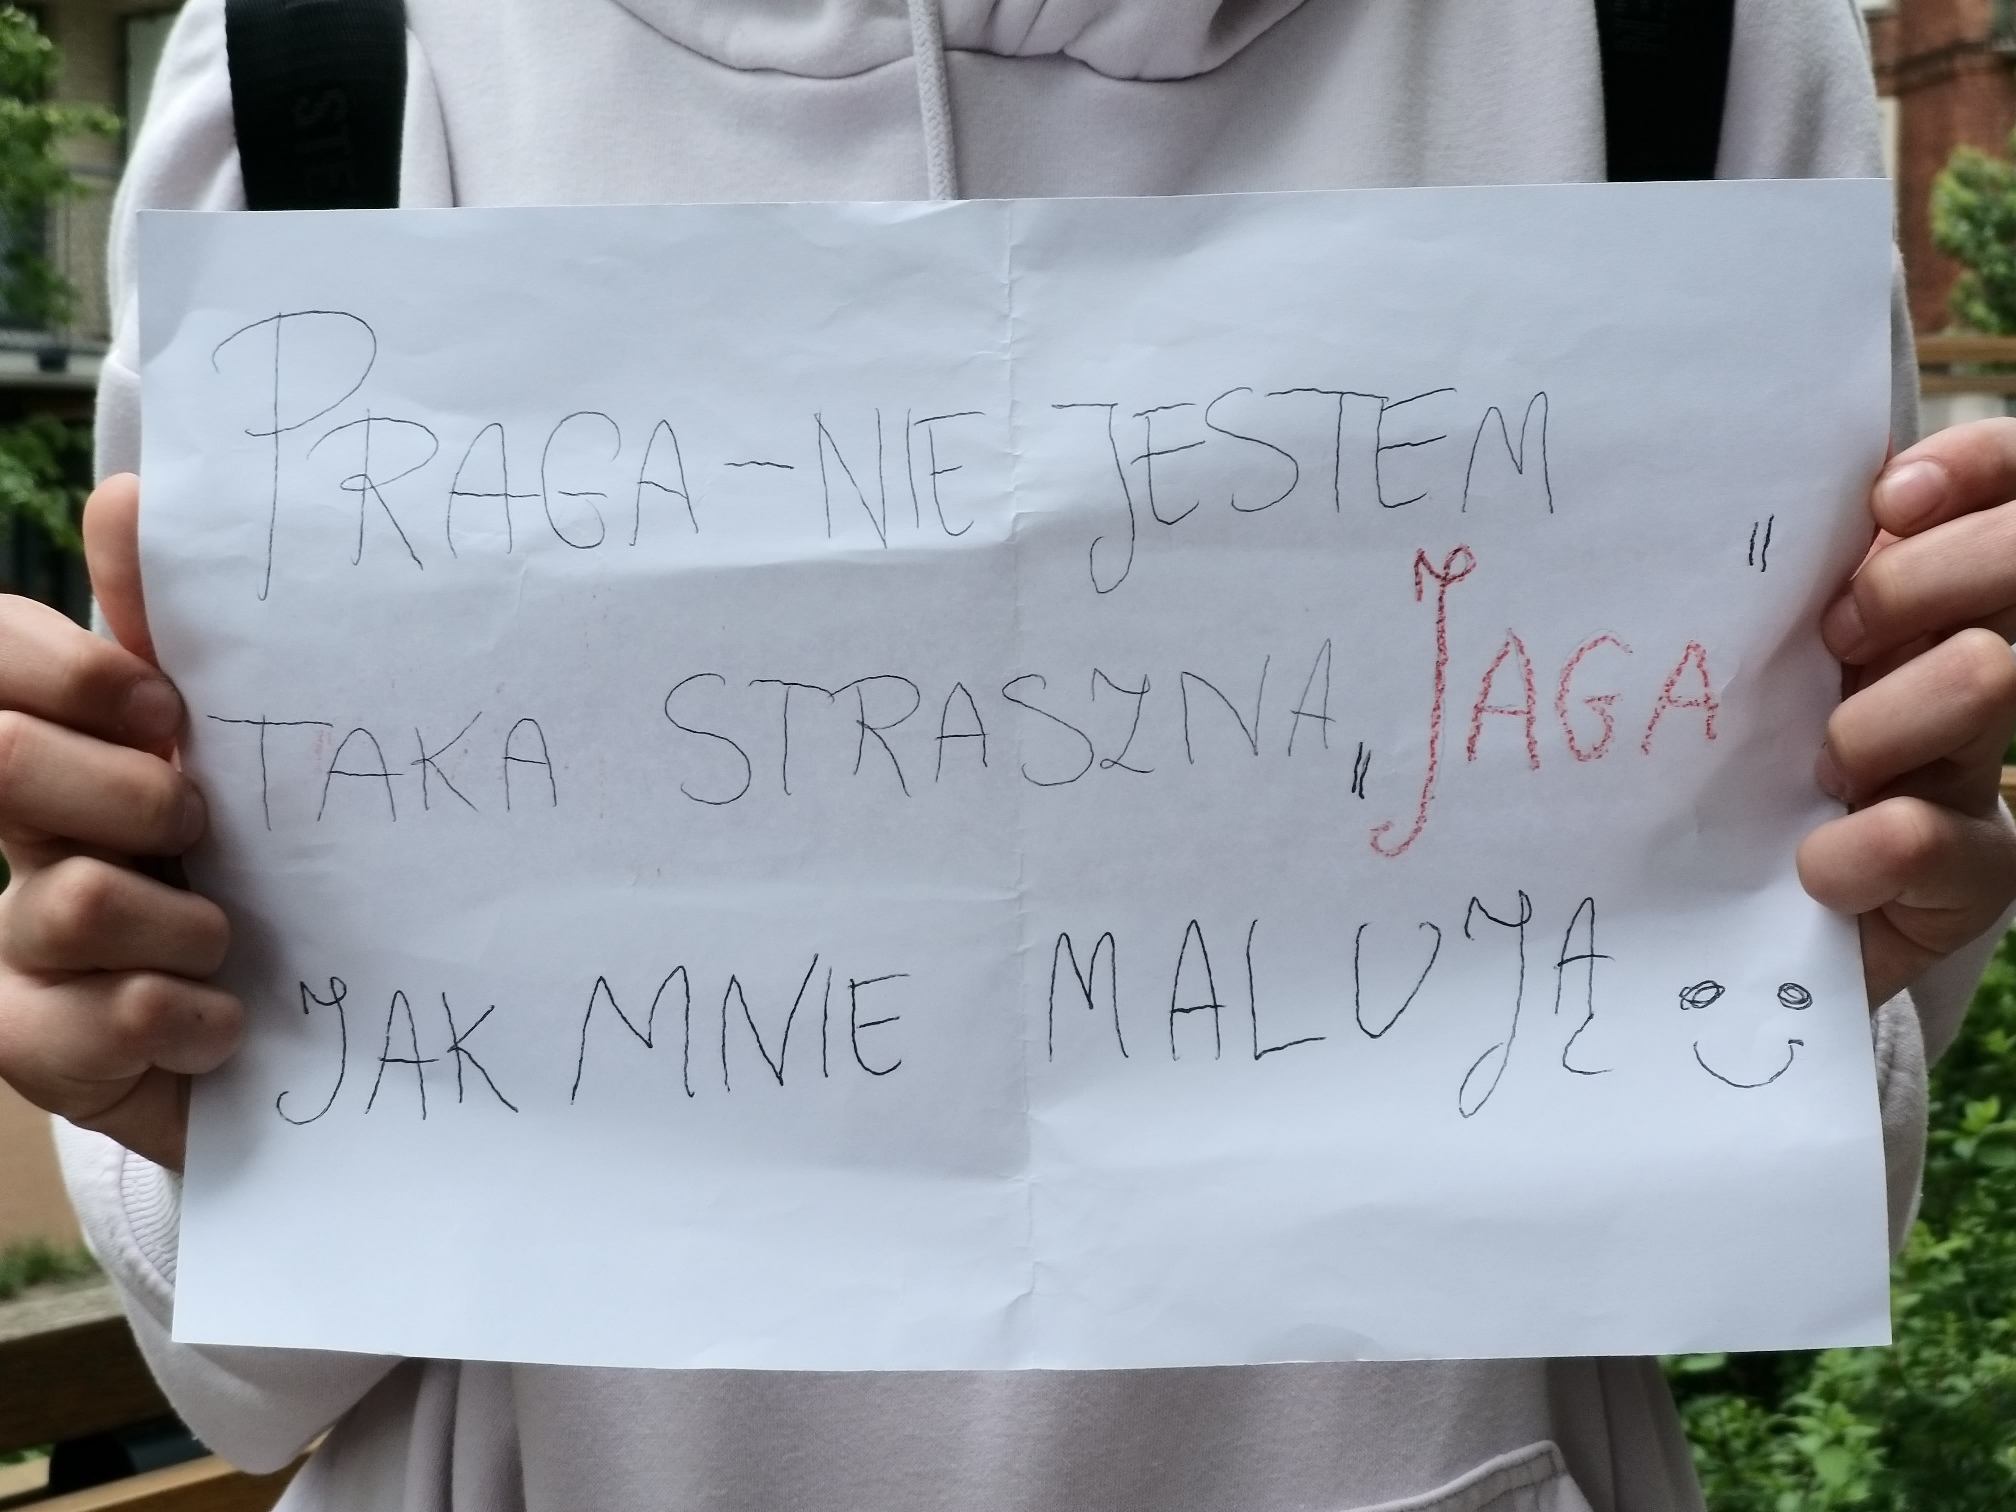 PRAGA - NIE JESTEM
TAKA STRASZNA „JAGA"
JAK MNIE MALUJĄ